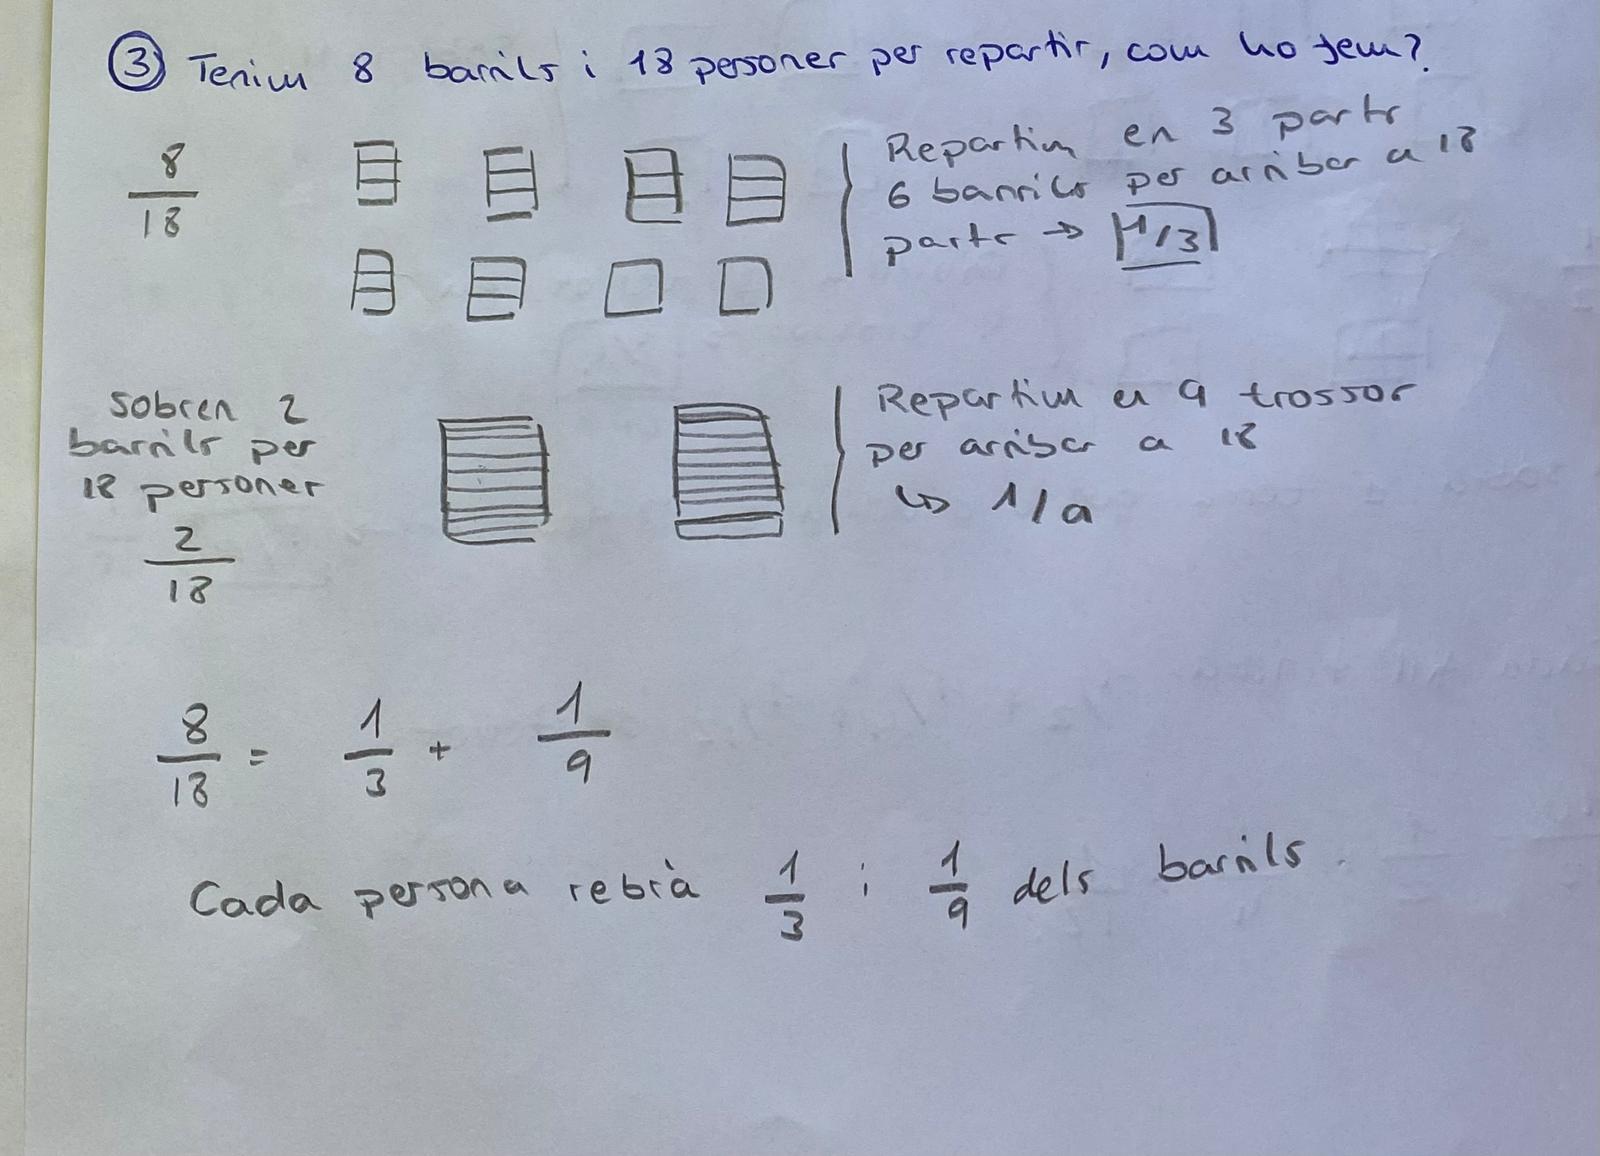 3 Tenim 8 barrils i 18 persones per repartir, com ho fem?
8
18
Repartim en 3 parts
6 barrils per arribar a 18
parts → 1/3
sobren 2
barrils per
18 persones
2
18
Repartim en 9 trossos
per arribar a 18
↳ 1/9
8/18 = 1/3 + 1/9
Cada persona rebrà 1/3 i 1/9 dels barrils.